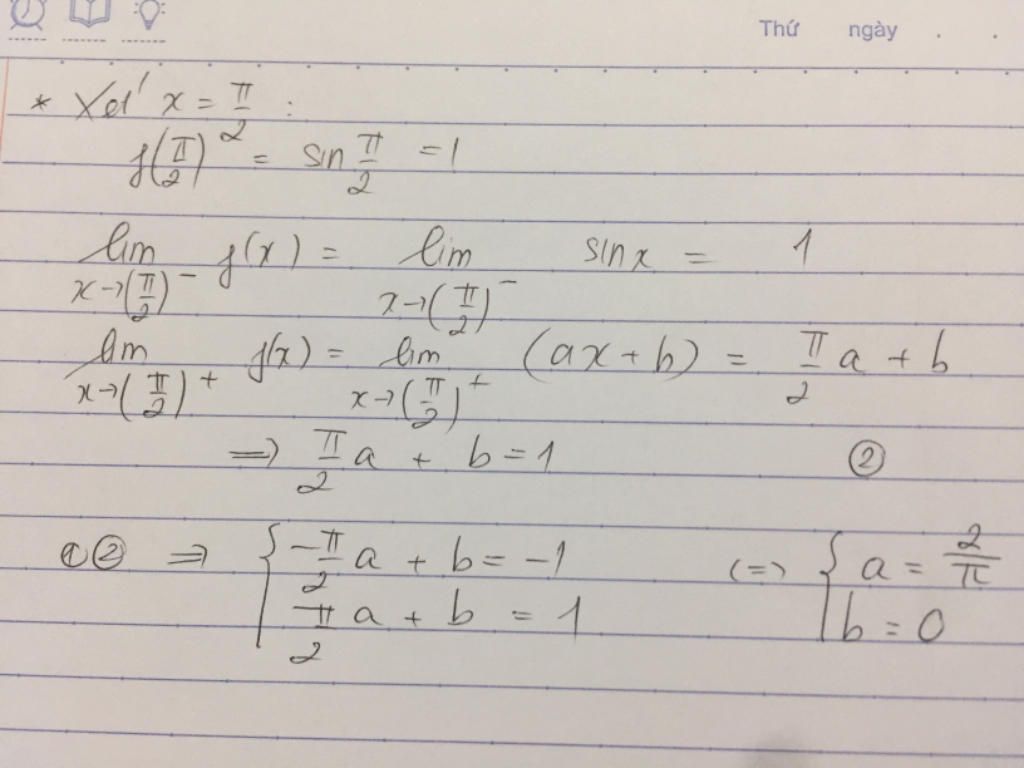 Thứ ngày . .
* Xét x = π/2 :
f(π/2) = sin π/2 = 1
lim x→(π/2)⁻ f(x) = lim x→(π/2)⁻ sin x = 1
lim x→(π/2)⁺ f(x) = lim x→(π/2)⁺ (ax + b) = π/2 a + b
⇒ π/2 a + b = 1 ②
①② ⇒ { -π/2 a + b = -1 (=) { a = 2/π
π/2 a + b = 1 b = 0